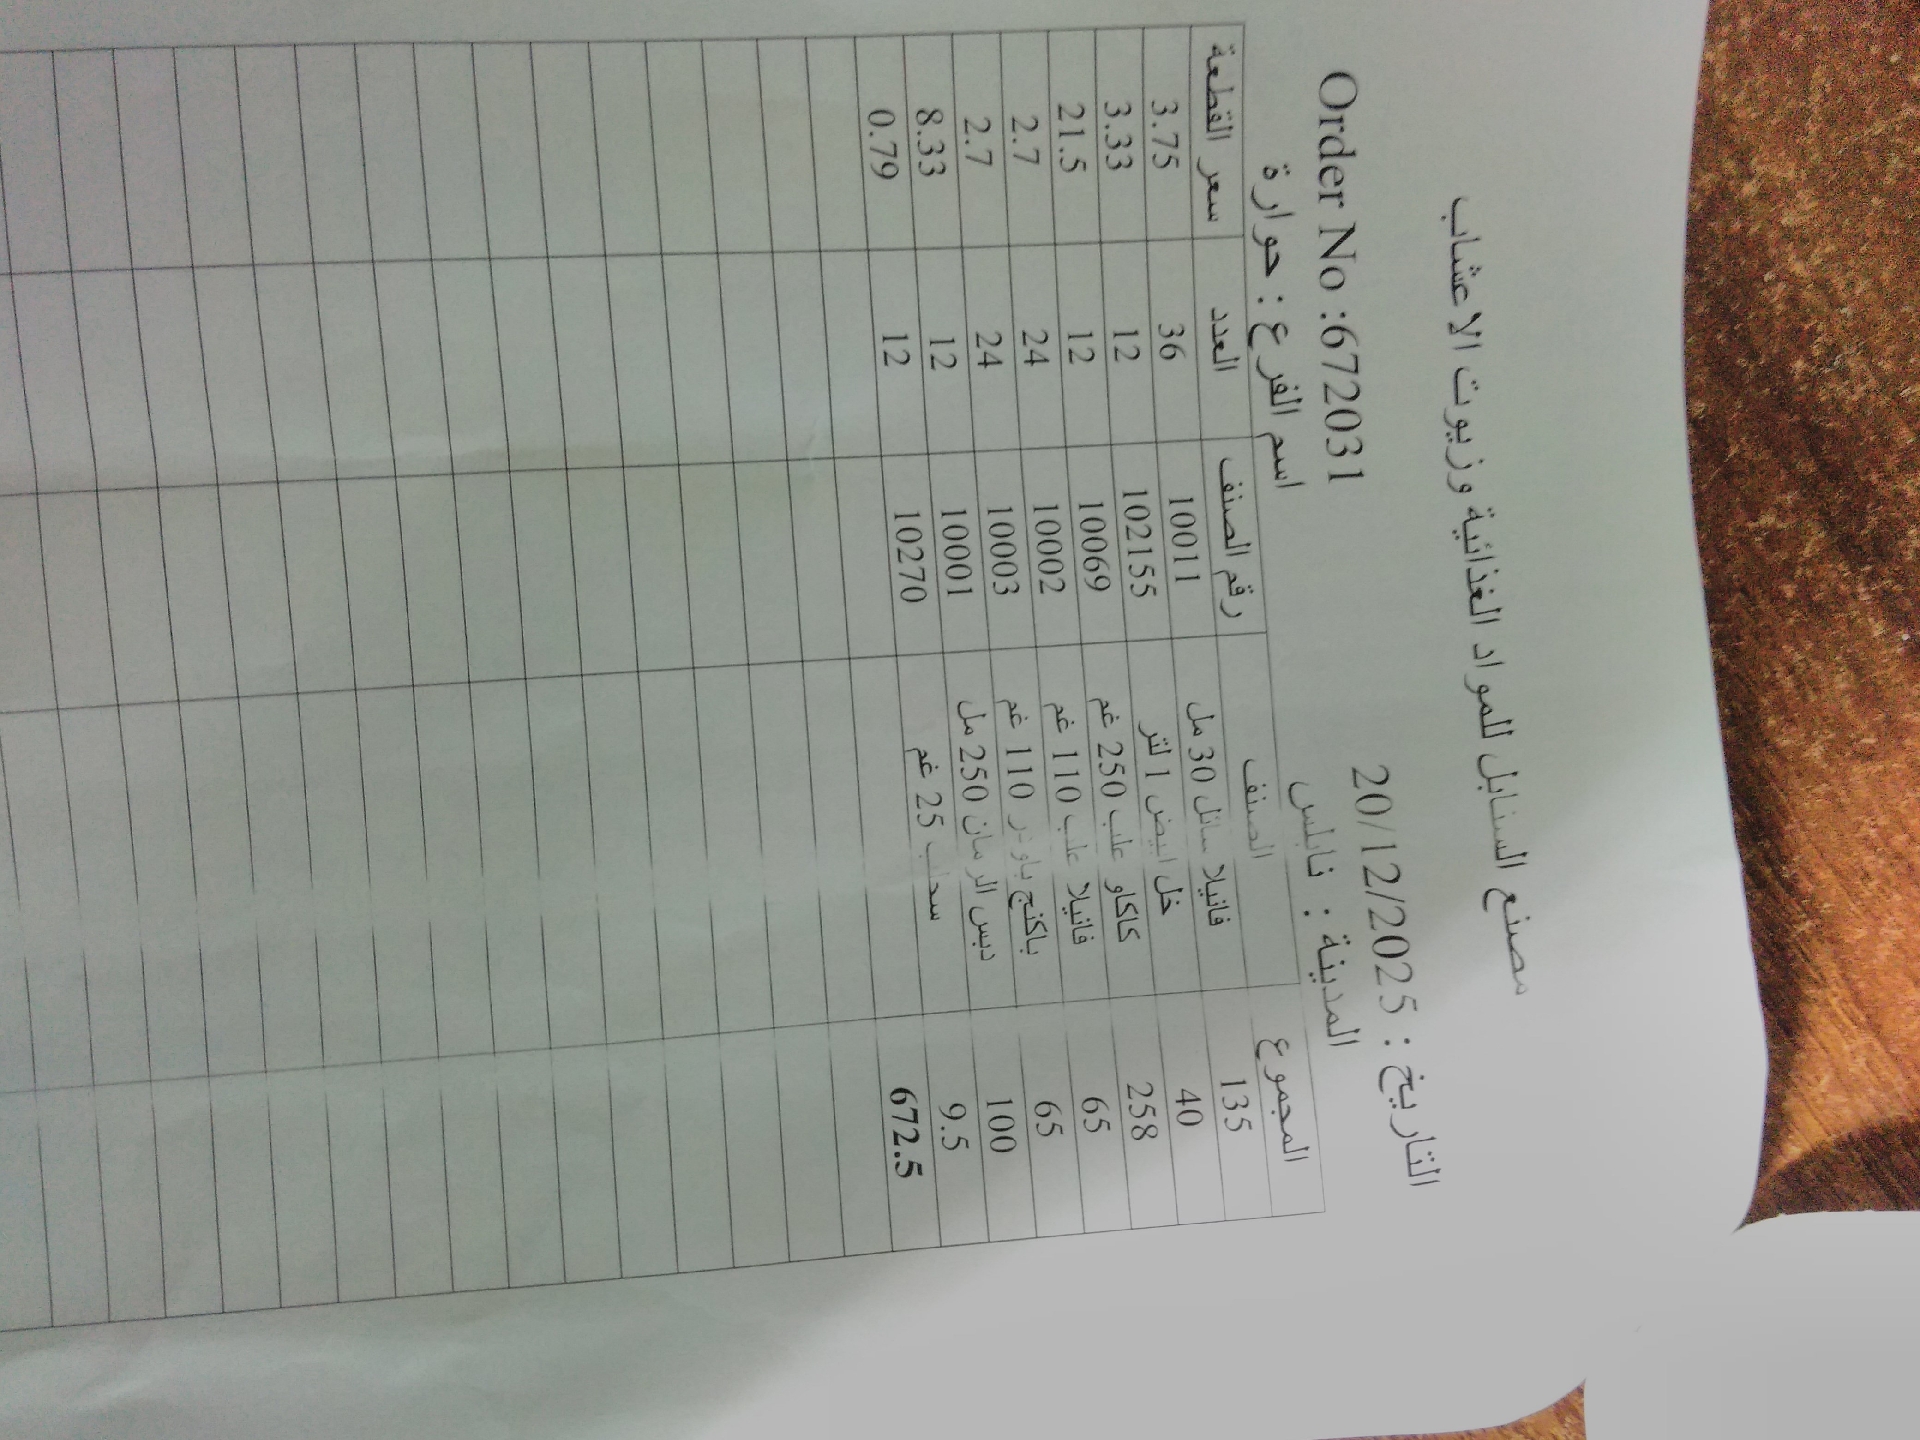 مصنع السنابل للمواد الغذائية وزيوت الاعشاب
Order No :672031 التاريخ : 20/12/2025
اسم الفرع : حوارة المدينة : نابلس
سعر القطعة العدد رقم الصنف الصنف المجموع
3.75 36 10011 فانيلا سائل 30 مل 135
3.33 12 102155 خل ابيض 1 لتر 40
21.5 12 10069 كاكاو علب 250 غم 258
2.7 24 10002 فانيلا علب 110 غم 65
2.7 24 10003 باكنج باودر 110 غم 65
8.33 12 10001 دبس الرمان 250 مل 100
0.79 12 10270 سحلب 25 غم 9.5
672.5